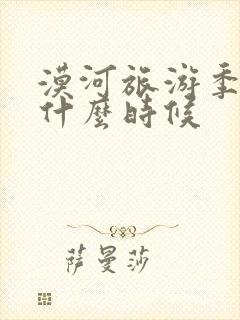 漠河旅游季
什麼時候
萨曼莎